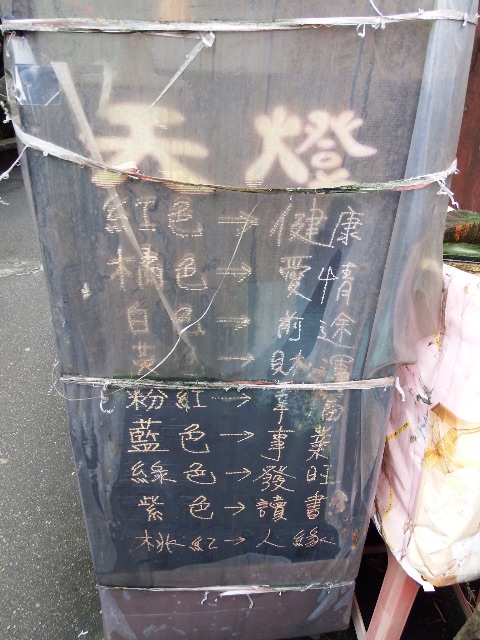 天燈
紅色→健康
橘色→愛情
白色→前途
黃色→財運
粉紅→幸福
藍色→事業
綠色→發旺
紫色→讀書
桃紅→人緣